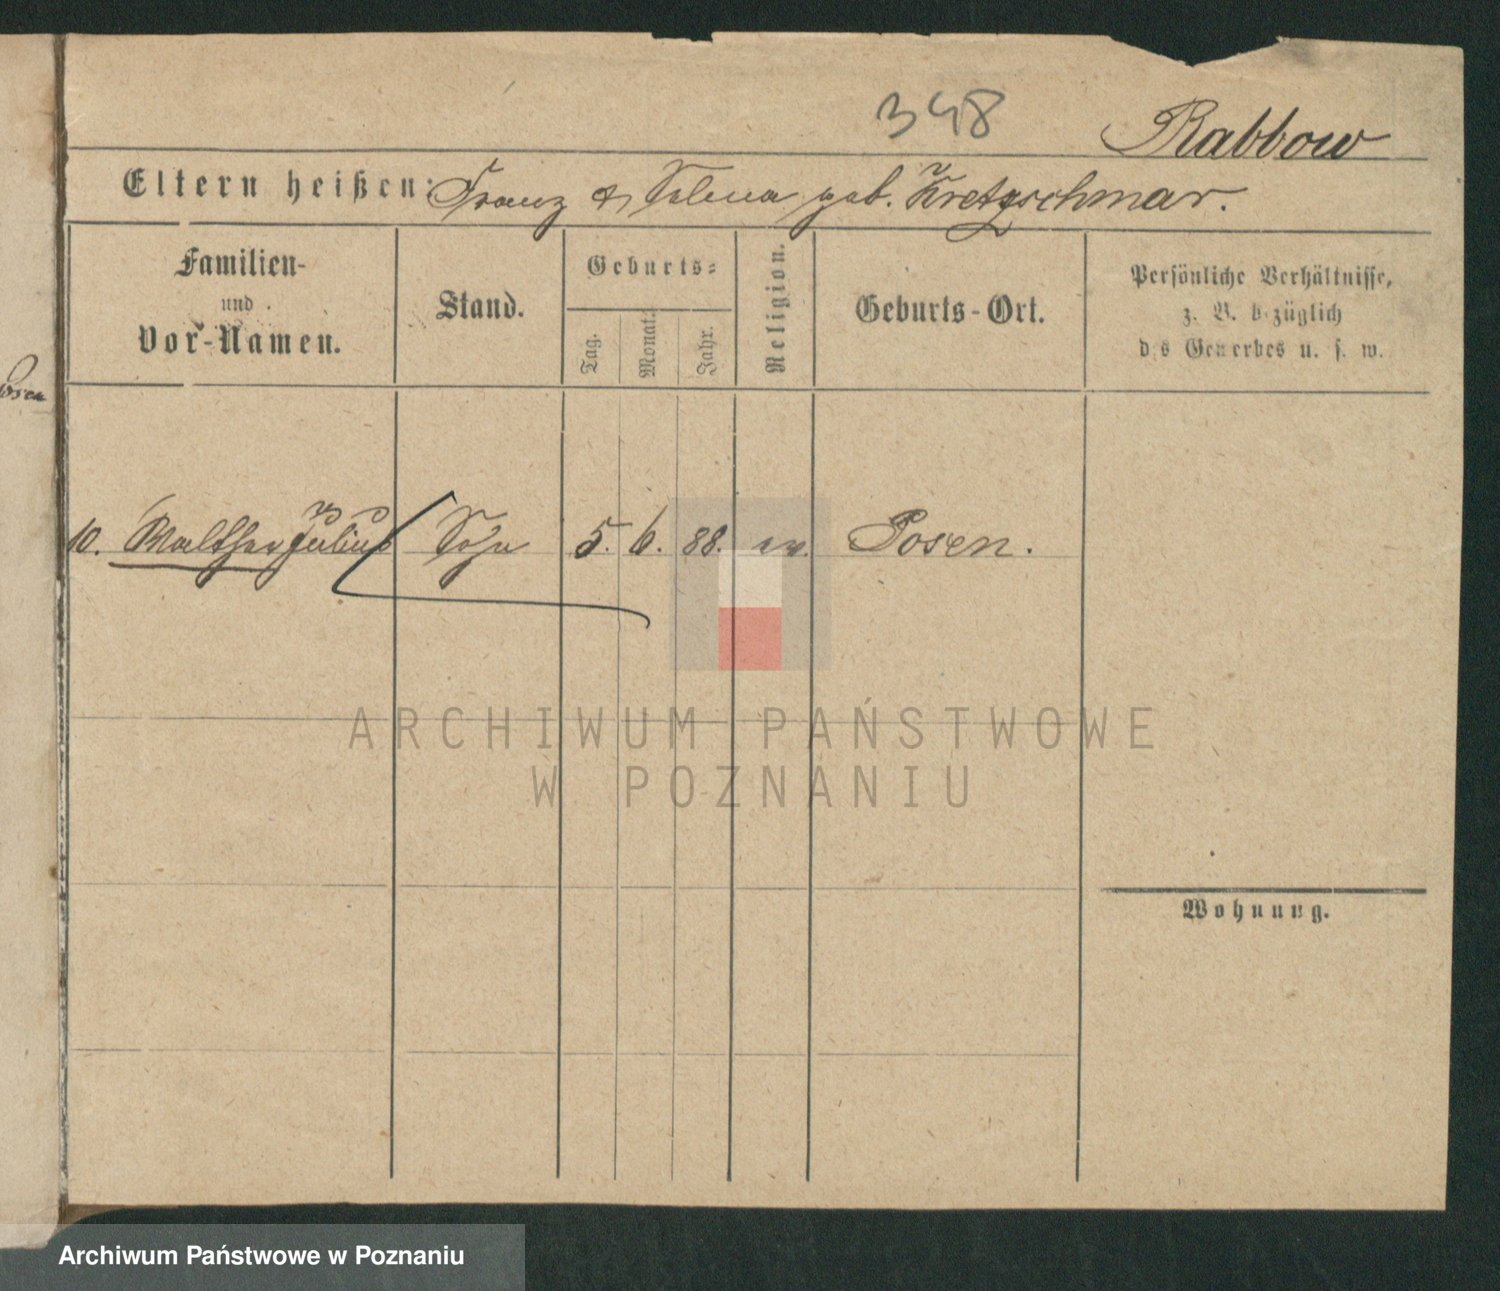 348
Rabbow
Eltern heißen: Franz & Selma geb. Kretzschmar.
Familien-
und
Vor-Namen.
Stand.
Geburts-
Tag.
Monat.
Jahr.
Religion.
Geburts-Ort.
Persönliche Verhältnisse,
z. B. bezüglich
des Gewerbes u. s. w.
10. Walther Julius Sohn 5. 6. 88. ev. Posen.
ARCHIWUM PAŃSTWOWE
W POZNANIU
Wohnung.
Archiwum Państwowe w Poznaniu